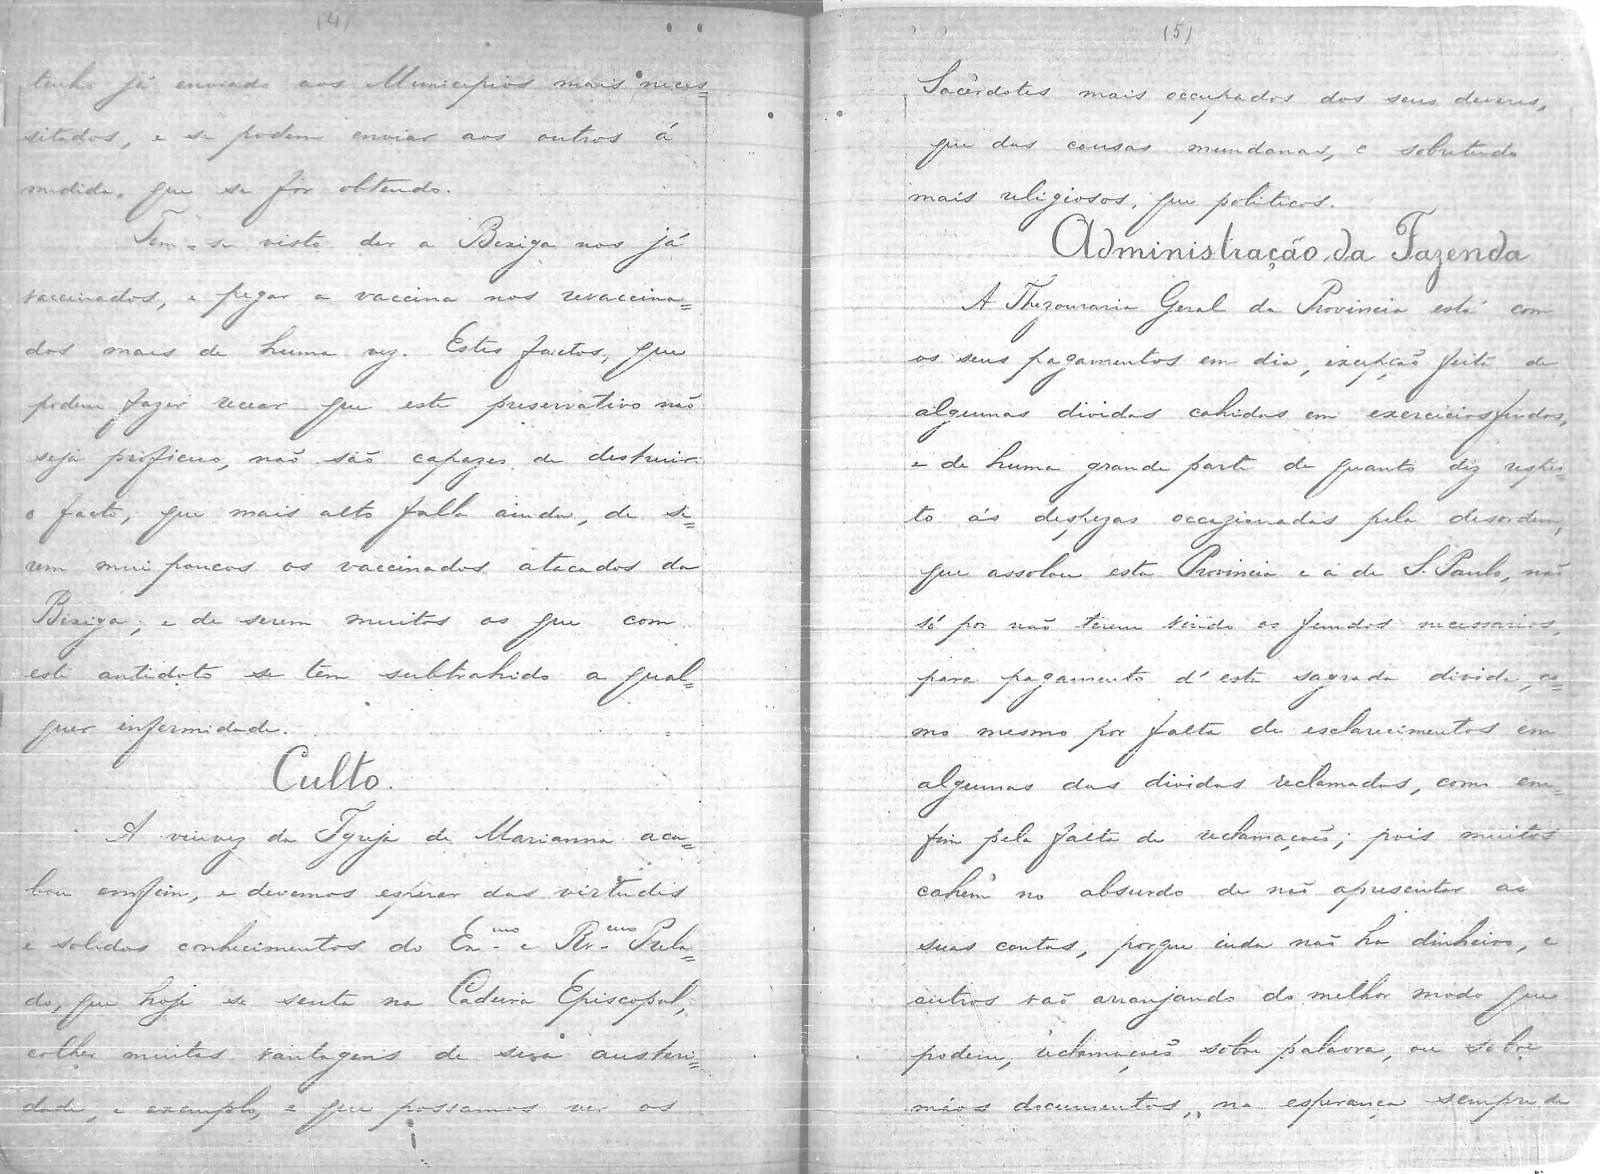 (4)
tenho já enviado aos Municipios mais neces=
sitados, e se podem enviar aos outros á
medida, que se fôr obtendo.
Tem-se visto dar a Bexiga nos já
vaccinados, e pegar a vaccina nos revaccina=
dos mais de huma vez. Estes factos, que
podem fazer recear que este preservativo não
seja proficuo, não são capazes de destruir
o facto, que mais alto falla ainda, de se=
rem mui poucos os vaccinados atacados da
Bexiga; e de serem muitos os que com
este antidoto se têm subtrahido a qual=
quer infermidade.
Culto.
A viuvez da Igreja de Marianna aca=
bou emfim, e devemos esperar das virtudes
e solidos conhecimentos do Ex.mo e Rv.mo Prela=
do, que hoje se senta na Cadeira Episcopal,
colher muitas vantagens de sua austeri=
dade, e exemplo, e que possamos ver os
(5)
Sacerdotes mais occupados dos seus deveres,
que das cousas mundanas, e sobretudo
mais religiosos, que politicos.
Administração da Fazenda
A Thezouraria Geral da Provincia está com
os seus pagamentos em dia, excepção feita de
algumas dividas cahidas em exercicios findos,
e de huma grande parte de quanto diz respei=
to ás despezas occazionadas pela desordem,
que assolou esta Provincia e a de S. Paulo, não
só por não terem vindo os fundos necessarios,
para pagamento d'esta sagrada divida, co=
mo mesmo por falta de esclarecimentos em
algumas das dividas reclamadas, como em=
fim pela falta de reclamações; pois muitos
cahem no absurdo de não apresentar as
suas contas, porque inda não ha dinheiro, e
outros vão arranjando do melhor modo que
podem, reclamações sobre palavra, ou sobre
máos documentos, na esperança sempre de